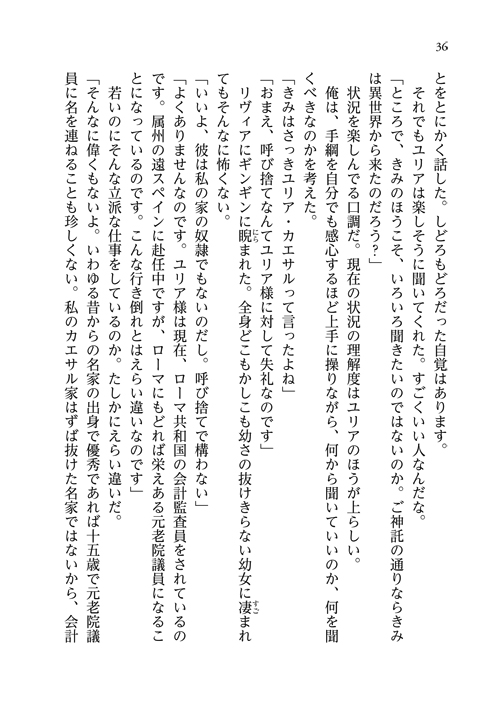 36
とをとにかく話した。しどろもどろだった自覚はあります。
それでもユリアは楽しそうに聞いてくれた。すごくいい人なんだな。
「ところで、きみのほうこそ、いろいろ聞きたいのではないのか。ご神託の通りならきみ
は異世界から来たのだろう？」
状況を楽しんでる口調だ。現在の状況の理解度はユリアのほうが上らしい。
俺は、手綱を自分でも感心するほど上手に操りながら、何から聞いていいのか、何を聞
くべきなのかを考えた。
「きみはさっきユリア・カエサルって言ったよね」
「おまえ、呼び捨てなんてユリア様に対して失礼なのです」
リヴィアにギンギンに睨まれた。全身どこもかしこも幼さの抜けきらない幼女に凄まれ
てもそんなに怖くない。
「いいよ、彼は私の家の奴隷でもないのだし。呼び捨てで構わない」
「よくありませんなのです。ユリア様は現在、ローマ共和国の会計監査員をされているの
です。属州の遠スペインに赴任中ですが、ローマにもどれば栄えある元老院議員になるこ
とになっているのです。こんな行き倒れとはえらい違いなのです」
若いのにそんな立派な仕事をしているのか。たしかにえらい違いだ。
「そんなに偉くもないよ。いわゆる昔からの名家の出身で優秀であれば十五歳で元老院議
員に名を連ねることも珍しくない。私のカエサル家はずば抜けた名家ではないから、会計